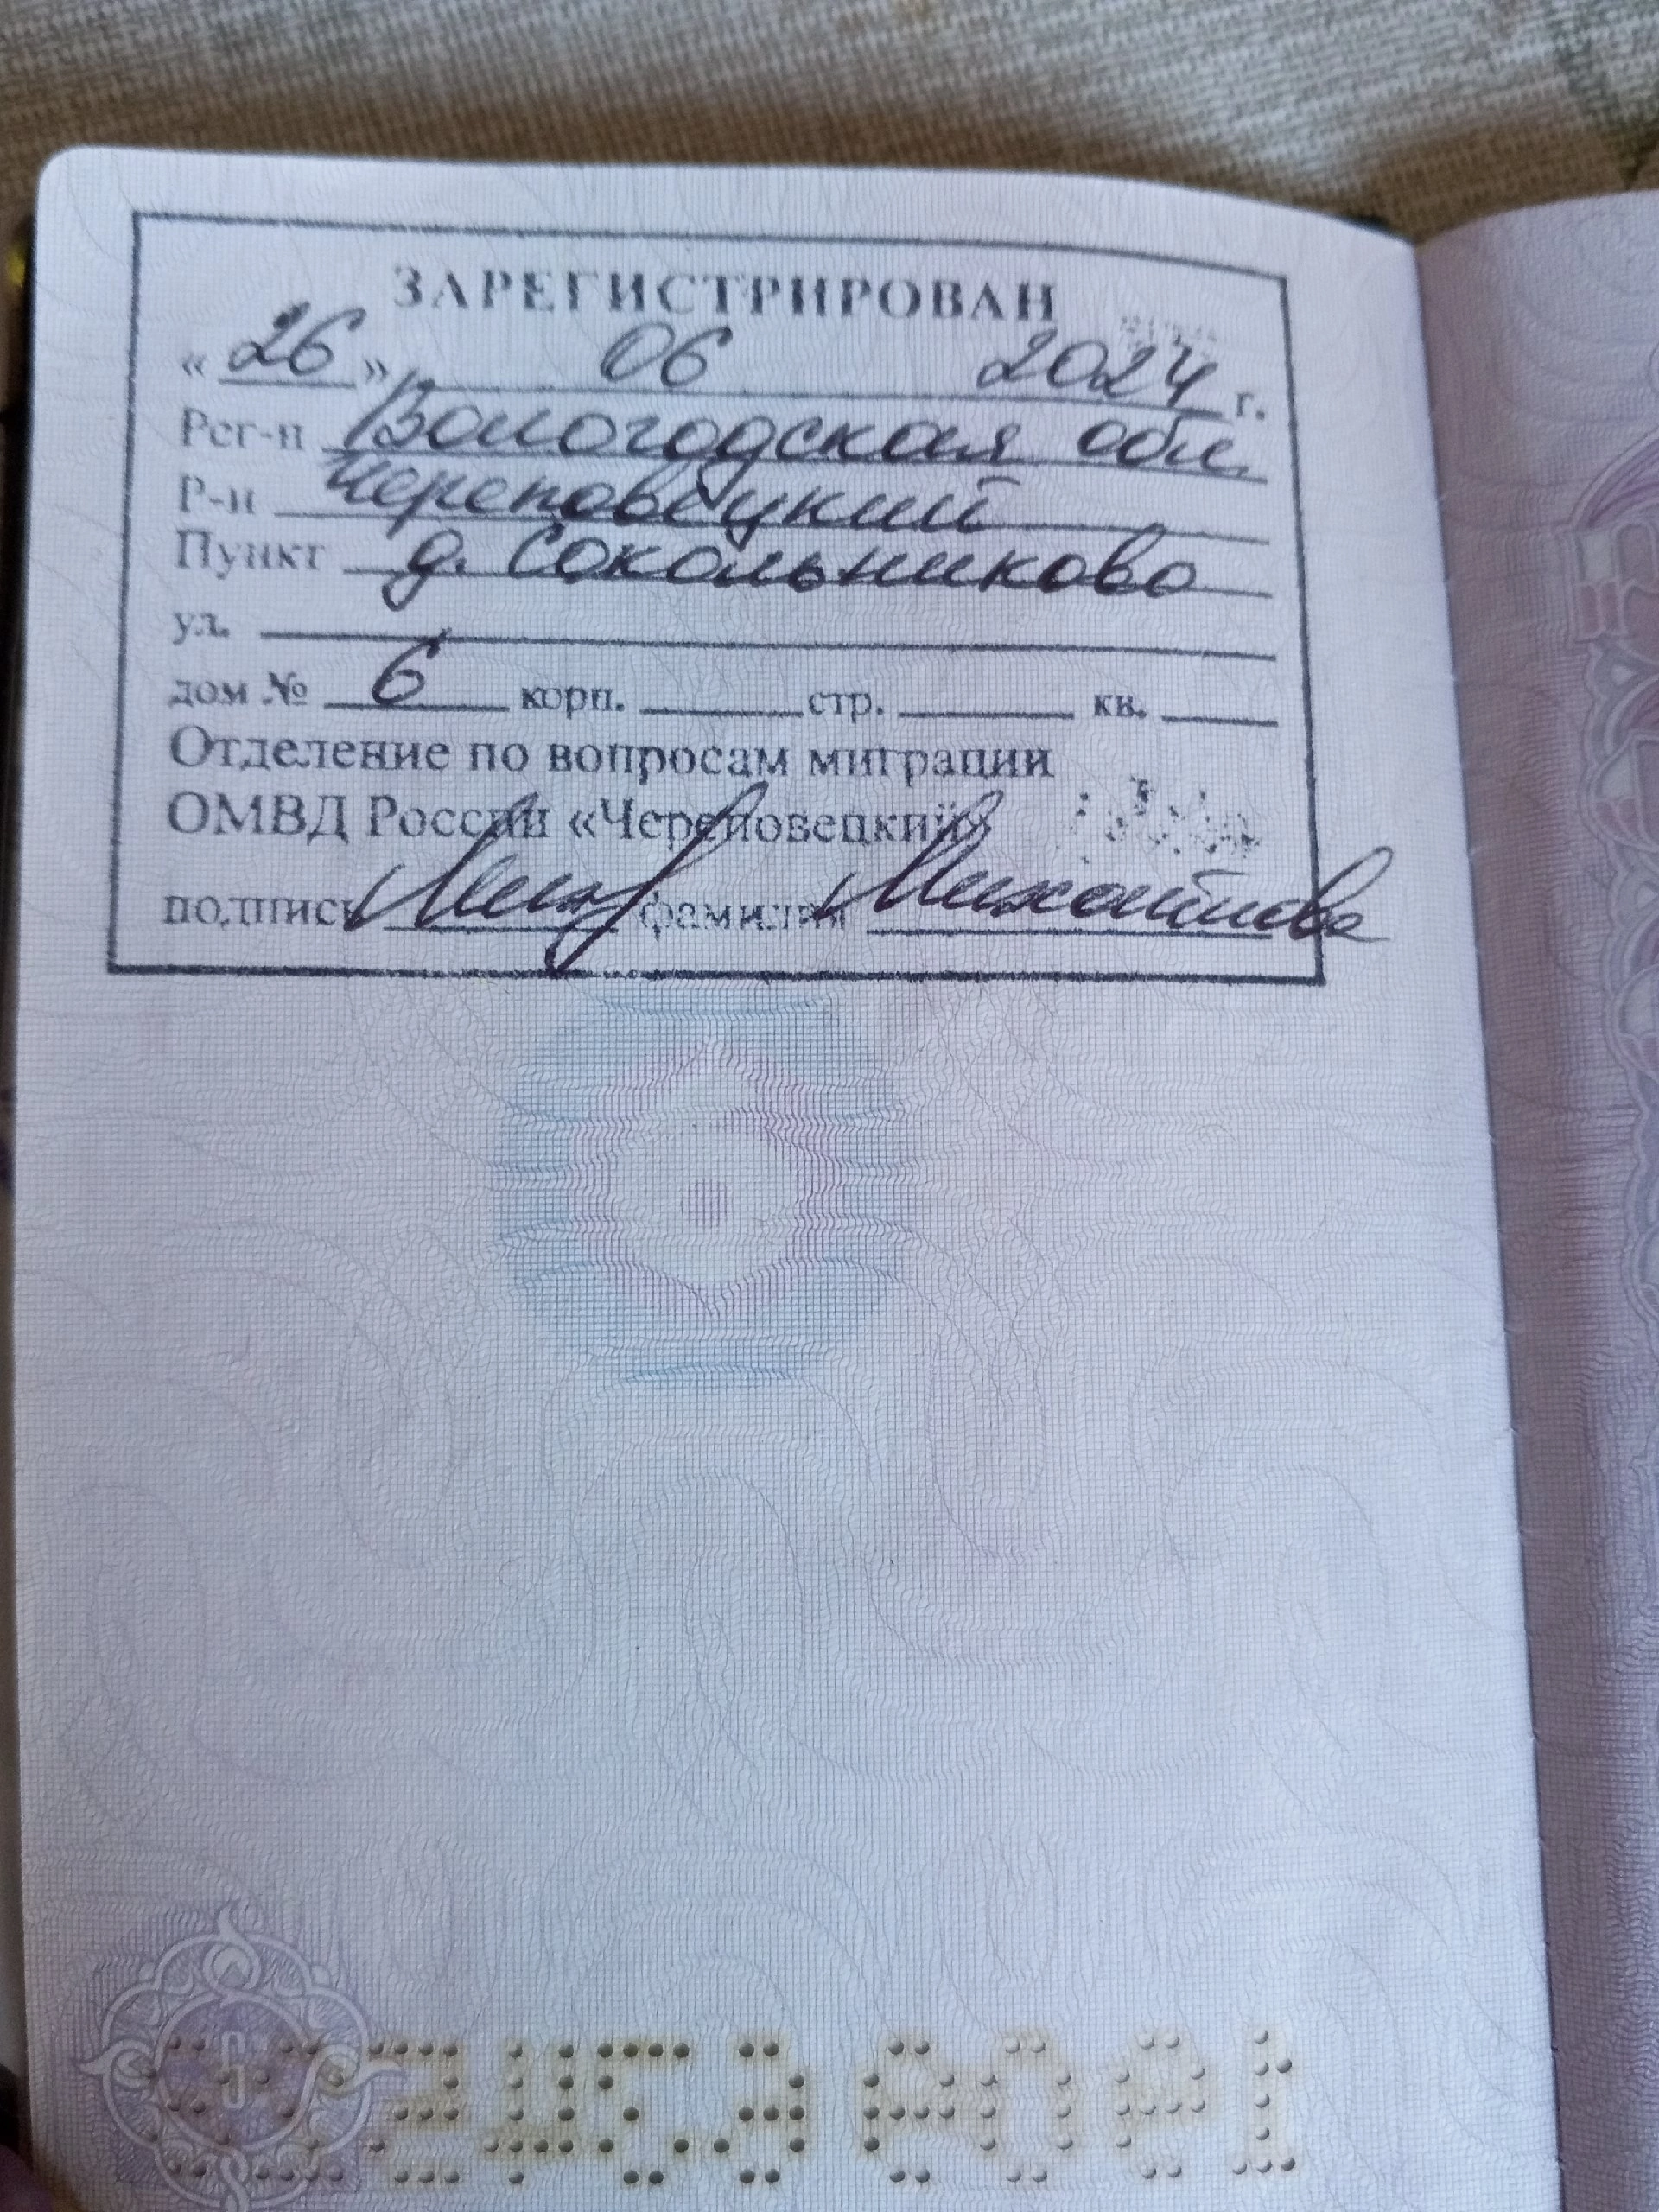 ЗАРЕГИСТРИРОВАН
« 26 » 06 2024 г.
Рег-н Вологодская обл.
Р-н Череповецкий
Пункт д. Сокольниково
ул.
дом № 6 корп. стр. кв.
Отделение по вопросам миграции
ОМВД России «Череповецкий»
подпись фамилия Михайлова